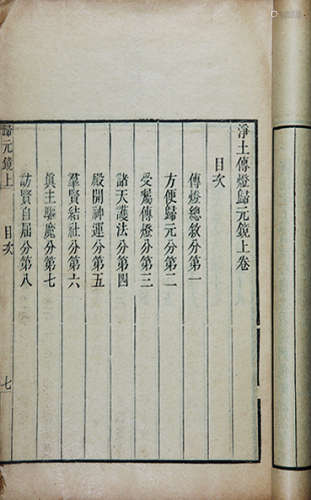 淨土傳燈歸元鏡上卷
目次
傳燈總敘分第一
方便歸元分第二
受囑傳燈分第三
諸天護法分第四
殿開神運分第五
羣賢結社分第六
眞主驅魔分第七
訪賢自屈分第八
歸元鏡上
目次
七